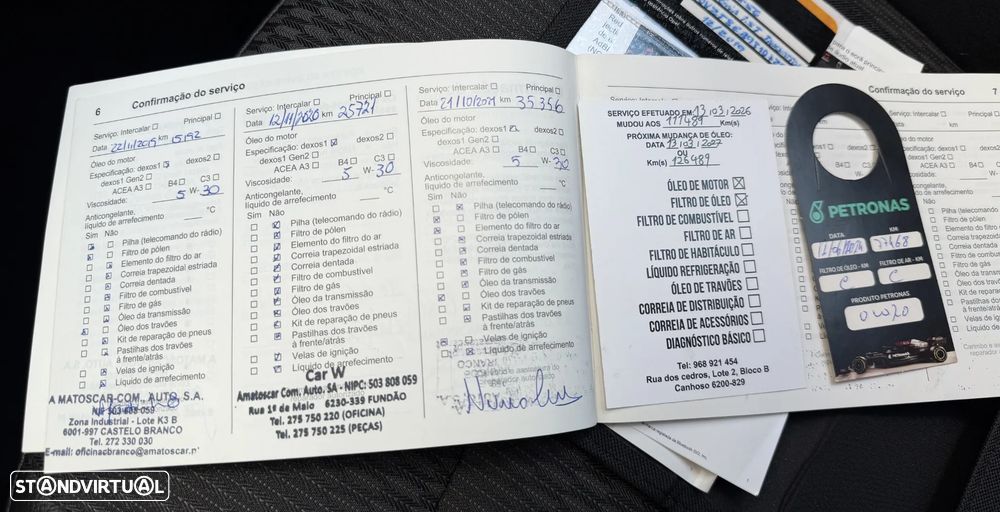 6 Confirmação do serviço
Serviço: Intercalar ☐ Principal ☐
Data 22/11/2019 km 15192
Óleo do motor
Especificação: dexos1 ☒ dexos2 ☐
dexos1 Gen2 ☐
ACEA A3 ☐ B4 ☐ C3 ☐
Viscosidade: 5 W- 30
Anticongelante,
líquido de arrefecimento °C
Sim Não
Pilha (telecomando do rádio)
Filtro de pólen
Elemento do filtro do ar
Correia trapezoidal estriada
Correia dentada
Filtro de combustível
Filtro de gás
Óleo da transmissão
Óleo dos travões
Kit de reparação de pneus
Pastilhas dos travões
à frente/atrás
Velas de ignição
Líquido de arrefecimento
A MATOSCAR-COM. AUTO, S.A.
NIF 503 808 059
Zona Industrial - Lote K3 B
6001-997 CASTELO BRANCO
Tel. 272 330 030
E-mail: oficinacbranco@amatoscar.p
Serviço: Intercalar ☐ Principal ☐
Data 12/11/2020 km 25721
Óleo do motor
Especificação: dexos1 ☒ dexos2 ☐
dexos1 Gen2 ☐
ACEA A3 ☐ B4 ☐ C3 ☐
Viscosidade: 5 W- 30
Anticongelante,
líquido de arrefecimento °C
Sim Não
Pilha (telecomando do rádio)
Filtro de pólen
Elemento do filtro do ar
Correia trapezoidal estriada
Correia dentada
Filtro de combustível
Filtro de gás
Óleo da transmissão
Óleo dos travões
Kit de reparação de pneus
Pastilhas dos travões
à frente/atrás
Velas de ignição
Líquido de arrefecimento
Car W
Amatoscar Com. Auto. SA - NIPC: 503 808 059
Rua 1º de Maio 6230-339 FUNDÃO
Tel. 275 750 220 (OFICINA)
Tel. 275 750 225 (PEÇAS)
Serviço: Intercalar ☐ Principal ☐
Data 21/10/2021 km 35.356
Óleo do motor
Especificação: dexos1 ☒ dexos2 ☐
dexos1 Gen2 ☐
ACEA A3 ☐ B4 ☐ C3 ☐
Viscosidade: 5 W- 30
Anticongelante,
líquido de arrefecimento °C
Sim Não
Pilha (telecomando do rádio)
Filtro de pólen
Elemento do filtro do ar
Correia trapezoidal estriada
Correia dentada
Filtro de combustível
Filtro de gás
Óleo da transmissão
Óleo dos travões
Kit de reparação de pneus
Pastilhas dos travões
à frente/atrás
Velas de ignição
Líquido de arrefecimento
Confirmação do serviço 7
SERVIÇO EFETUADO EM 13/03/2026
MUDOU AOS 111489 Km(s)
PRÓXIMA MUDANÇA DE ÓLEO:
DATA 13/03/2027
OU
Km(s) 126489
ÓLEO DE MOTOR ☒
FILTRO DE ÓLEO ☒
FILTRO DE COMBUSTÍVEL ☐
FILTRO DE AR ☐
FILTRO DE HABITÁCULO ☐
LÍQUIDO REFRIGERAÇÃO ☐
ÓLEO DE TRAVÕES ☐
CORREIA DE DISTRIBUIÇÃO ☐
CORREIA DE ACESSÓRIOS ☐
DIAGNÓSTICO BÁSICO ☐
Tel: 968 921 454
Rua dos cedros, Lote 2, Bloco B
Canhoso 6200-829
PETRONAS
DATA KM
77468
FILTRO DE ÓLEO - KM FILTRO DE AR - KM
C C
PRODUTO PETRONAS
0W20
STANDVIRTUAL